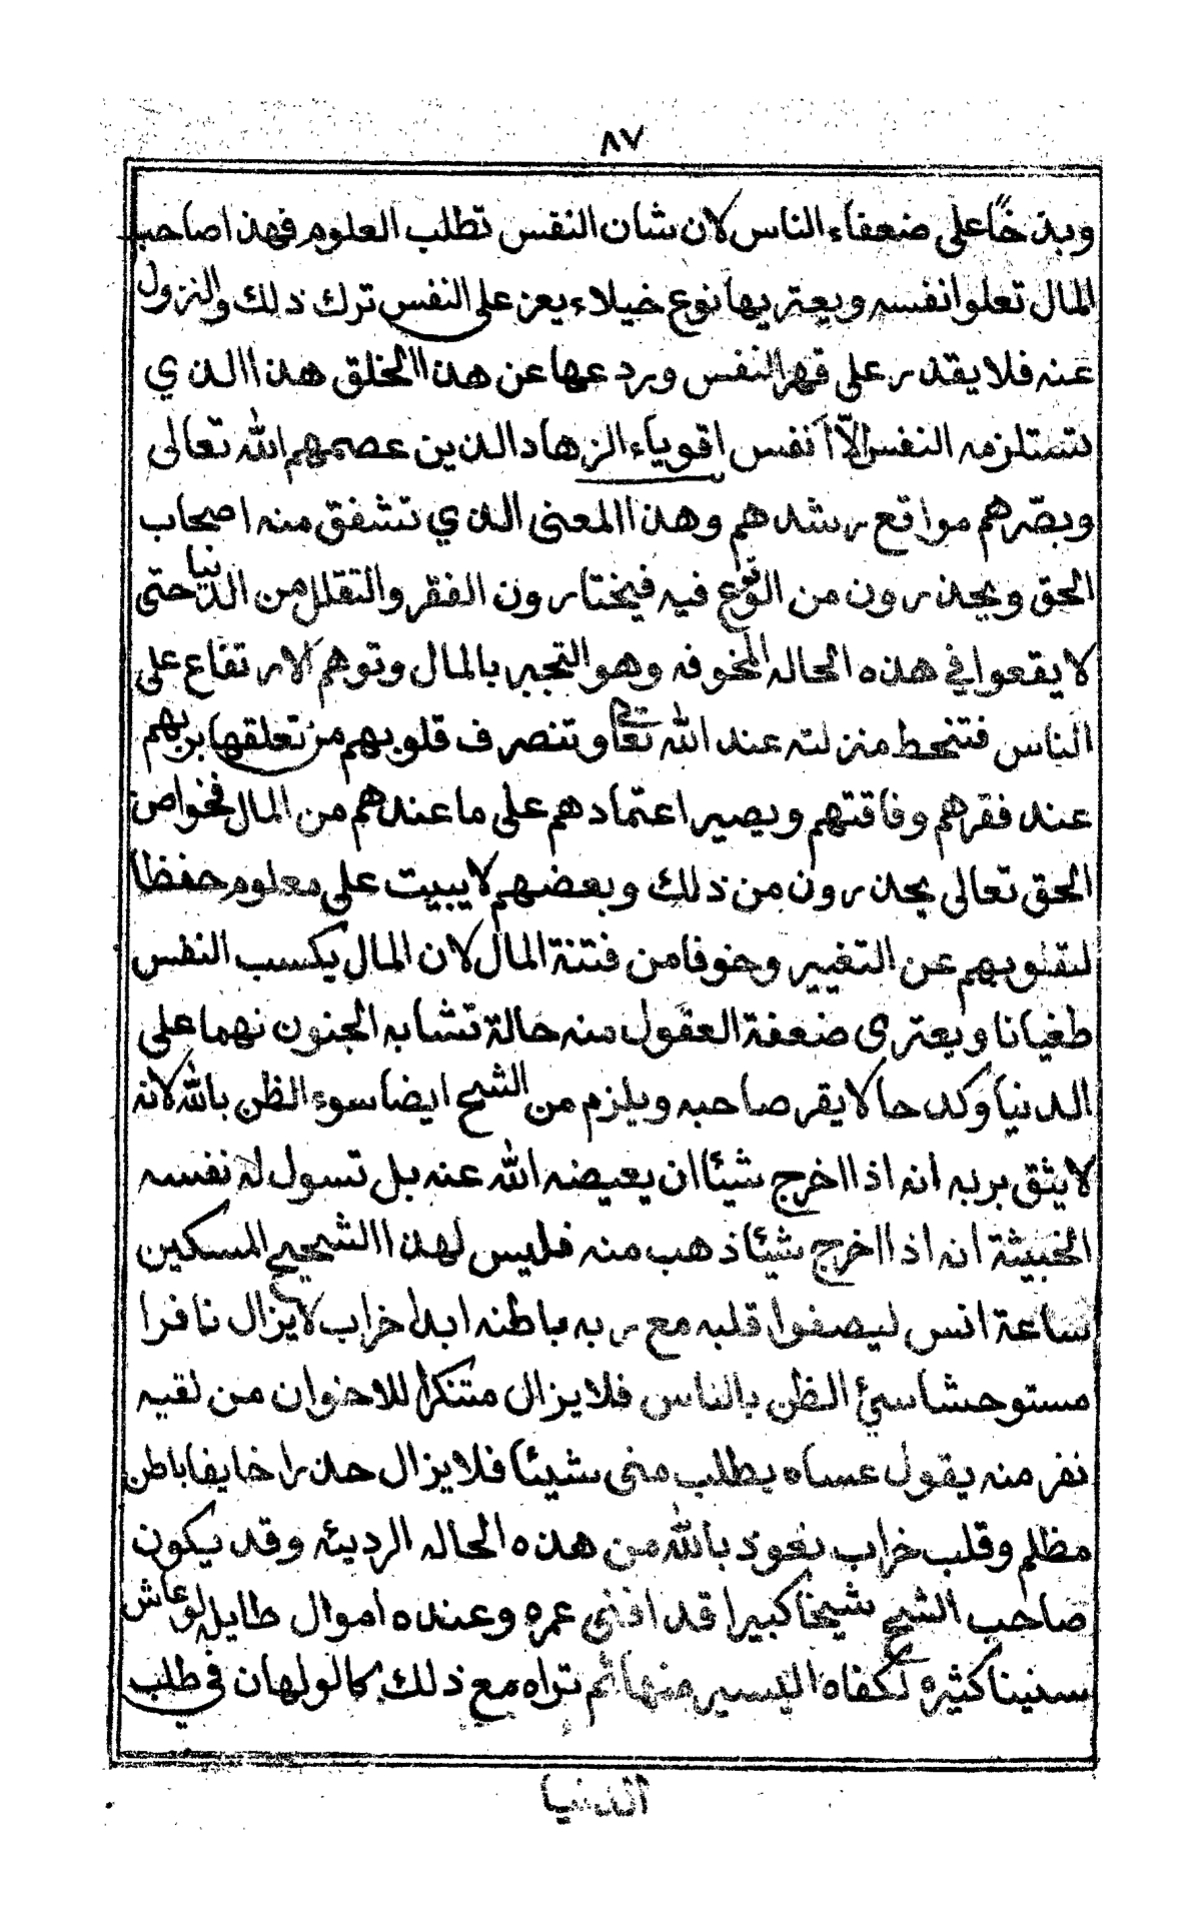 ٨٧
وبذخًا على ضعفاء الناس لان شان النفس تطلب العلوم فهذا صاحب
المال تعلوا نفسه ويعتريها نوع خيلاء يعز على النفس ترك ذلك والنزول
عنه فلا يقدر على قهر النفس وردعها عن هذا الخلق هذا الذي
تستلزمه النفس الّا انفس اقوياء الزهاد الذين عصمهم الله تعالى
وبصّرهم مواقع رشدهم وهذا المعنى الذي تشفق منه اصحاب
الحق ويحذرون من الوقوع فيه فيختارون الفقر والتقلل من الدنيا حتى
لا يقعوا في هذه الحاله المخوفه وهو التجبر بالمال وتوهم الارتفاع على
الناس فتنحط منزلته عند الله تعالى وتنصرف قلوبهم من تعلقها بربهم
عند فقرهم وفاقتهم ويصير اعتمادهم على ما عندهم من المال فخواص
الحق تعالى يحذرون من ذلك وبعضهم لا يبيت على معلوم حفظا
لقلوبهم عن التغيير وخوفا من فتنة المال لان المال يكسب النفس
طغيانا ويعترى ضعفة العقول منه حالة تشابه الجنون نهما على
الدنيا وكدحا لا يقر صاحبه ويلزم من الشح ايضا سوء الظن بالله لانه
لا يثق بربه انه اذا اخرج شيئا ان يعيضه الله عنه بل تسول له نفسه
الخبيثة انه اذا اخرج شيئا ذهب منه فليس لهذا الشحيح المسكين
ساعة انس ليصفوا قلبه مع ربه باطنه ابدا خراب لا يزال نافرا
مستوحشا سيئ الظن بالناس فلا يزال متنكرا للاخوان من لقيه
نفر منه يقول عساه يطلب منى شيئا فلا يزال حذرا خايفا باطن
مظلم وقلب خراب نعوذ بالله من هذه الحاله الرديئه وقد يكون
صاحب الشح شيخا كبيرا قد افنى عمره وعنده اموال طايله لو عاش
سنينا كثيره لكفاه اليسير منها ثم تراه مع ذلك كالولهان في طلب
الدنيا